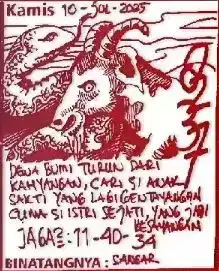 Kamis 10-JUL-2025
DEWA BUMI TURUN DARI
KAHYANGAN, CARI SI ANAK
SAKTI YANG LAGI GENTAYANGAN
CUMA SI ISTRI SEJATI, YANG JADI
KESAYANGAN
JAGA²: 11-40-34
BINATANGNYA: SANGAR